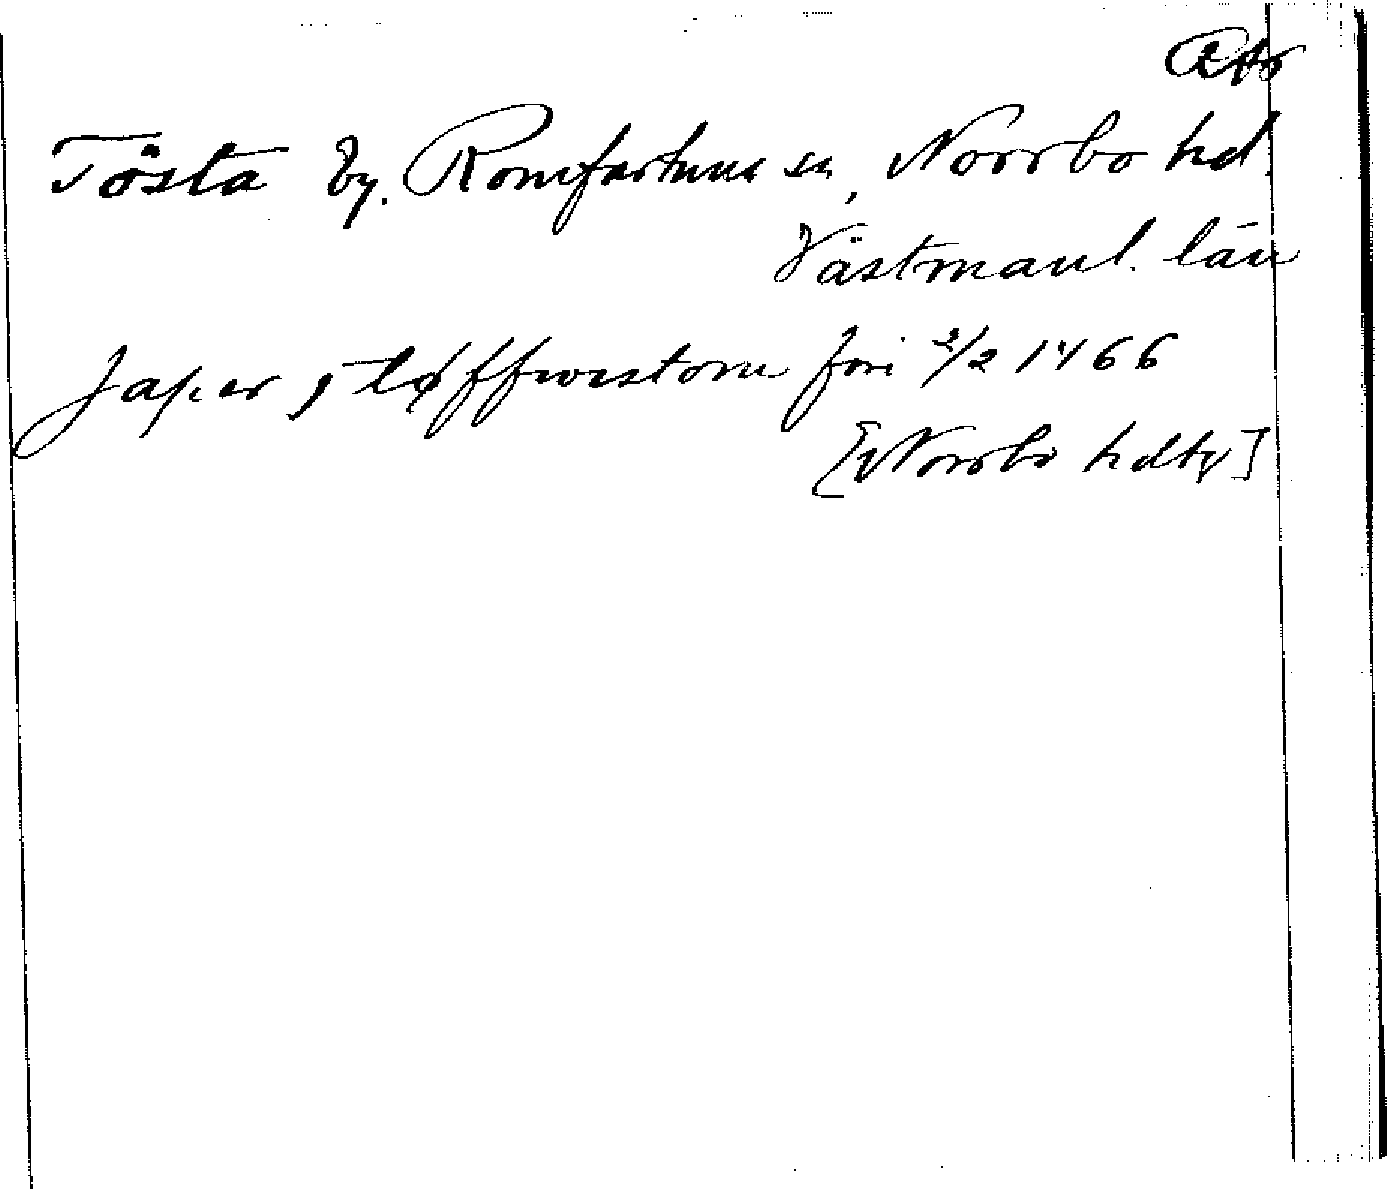 Tösta by. Romfartuna sn, Norrbo hd.
Västmanl. län
Japer j tøffwestom fori 2/2 1466
[Norrbo hdtg]